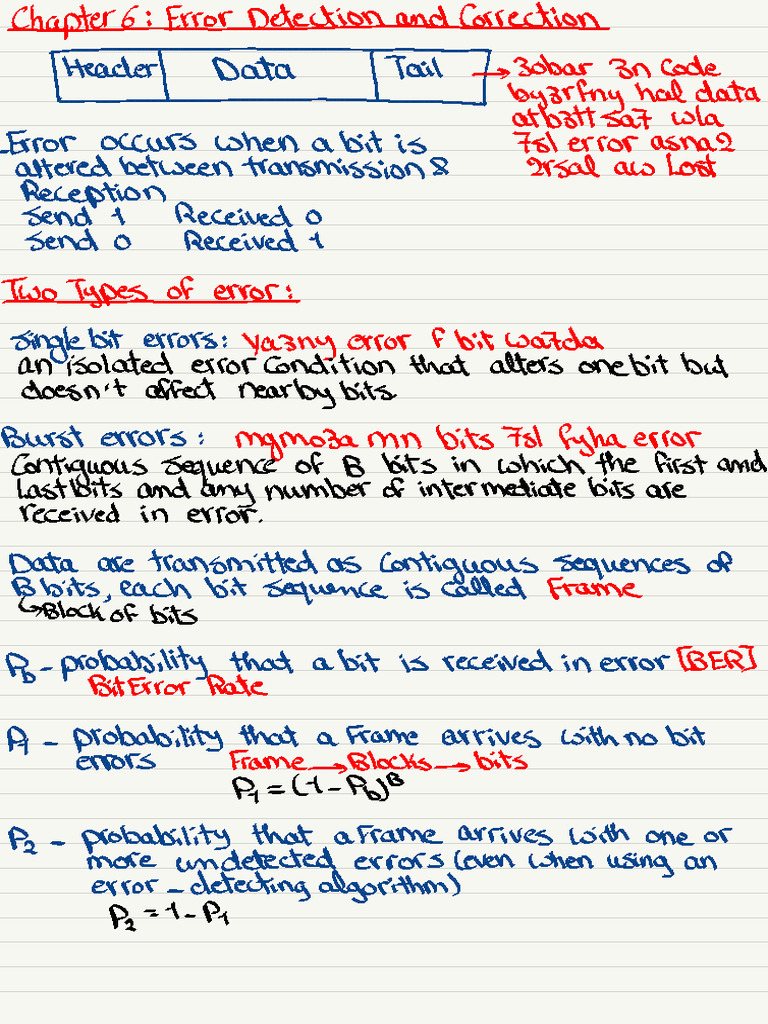 Chapter 6: Error Detection and Correction
Header Data Tail → 3obar 3n Code
by3rfny hal data
atb3tt sa7 wla
7sl error asna2
2rsal aw Lost
-Error occurs when a bit is
altered between transmission &
Reception
Send 1 Received 0
Send 0 Received 1
Two Types of error:
Single bit errors: ya3ny error f bit wa7da
an isolated error Condition that alters one bit but
doesn't affect nearby bits.
Burst errors: mgmo3a mn bits 7sl fyha error
Contiguous sequence of B bits in which the first and
last bits and any number of intermediate bits are
received in error.
Data are transmitted as Contiguous sequences of
B bits, each bit sequence is called Frame
↳Block of bits
Pb - probability that a bit is received in error [BER]
Bit Error Rate
P1 - probability that a Frame arrives with no bit
errors Frame → Blocks → bits
P1 = (1 - Pb)^B
P2 - probability that a Frame arrives with one or
more undetected errors (even when using an
error-detecting algorithm)
P2 = 1 - P1